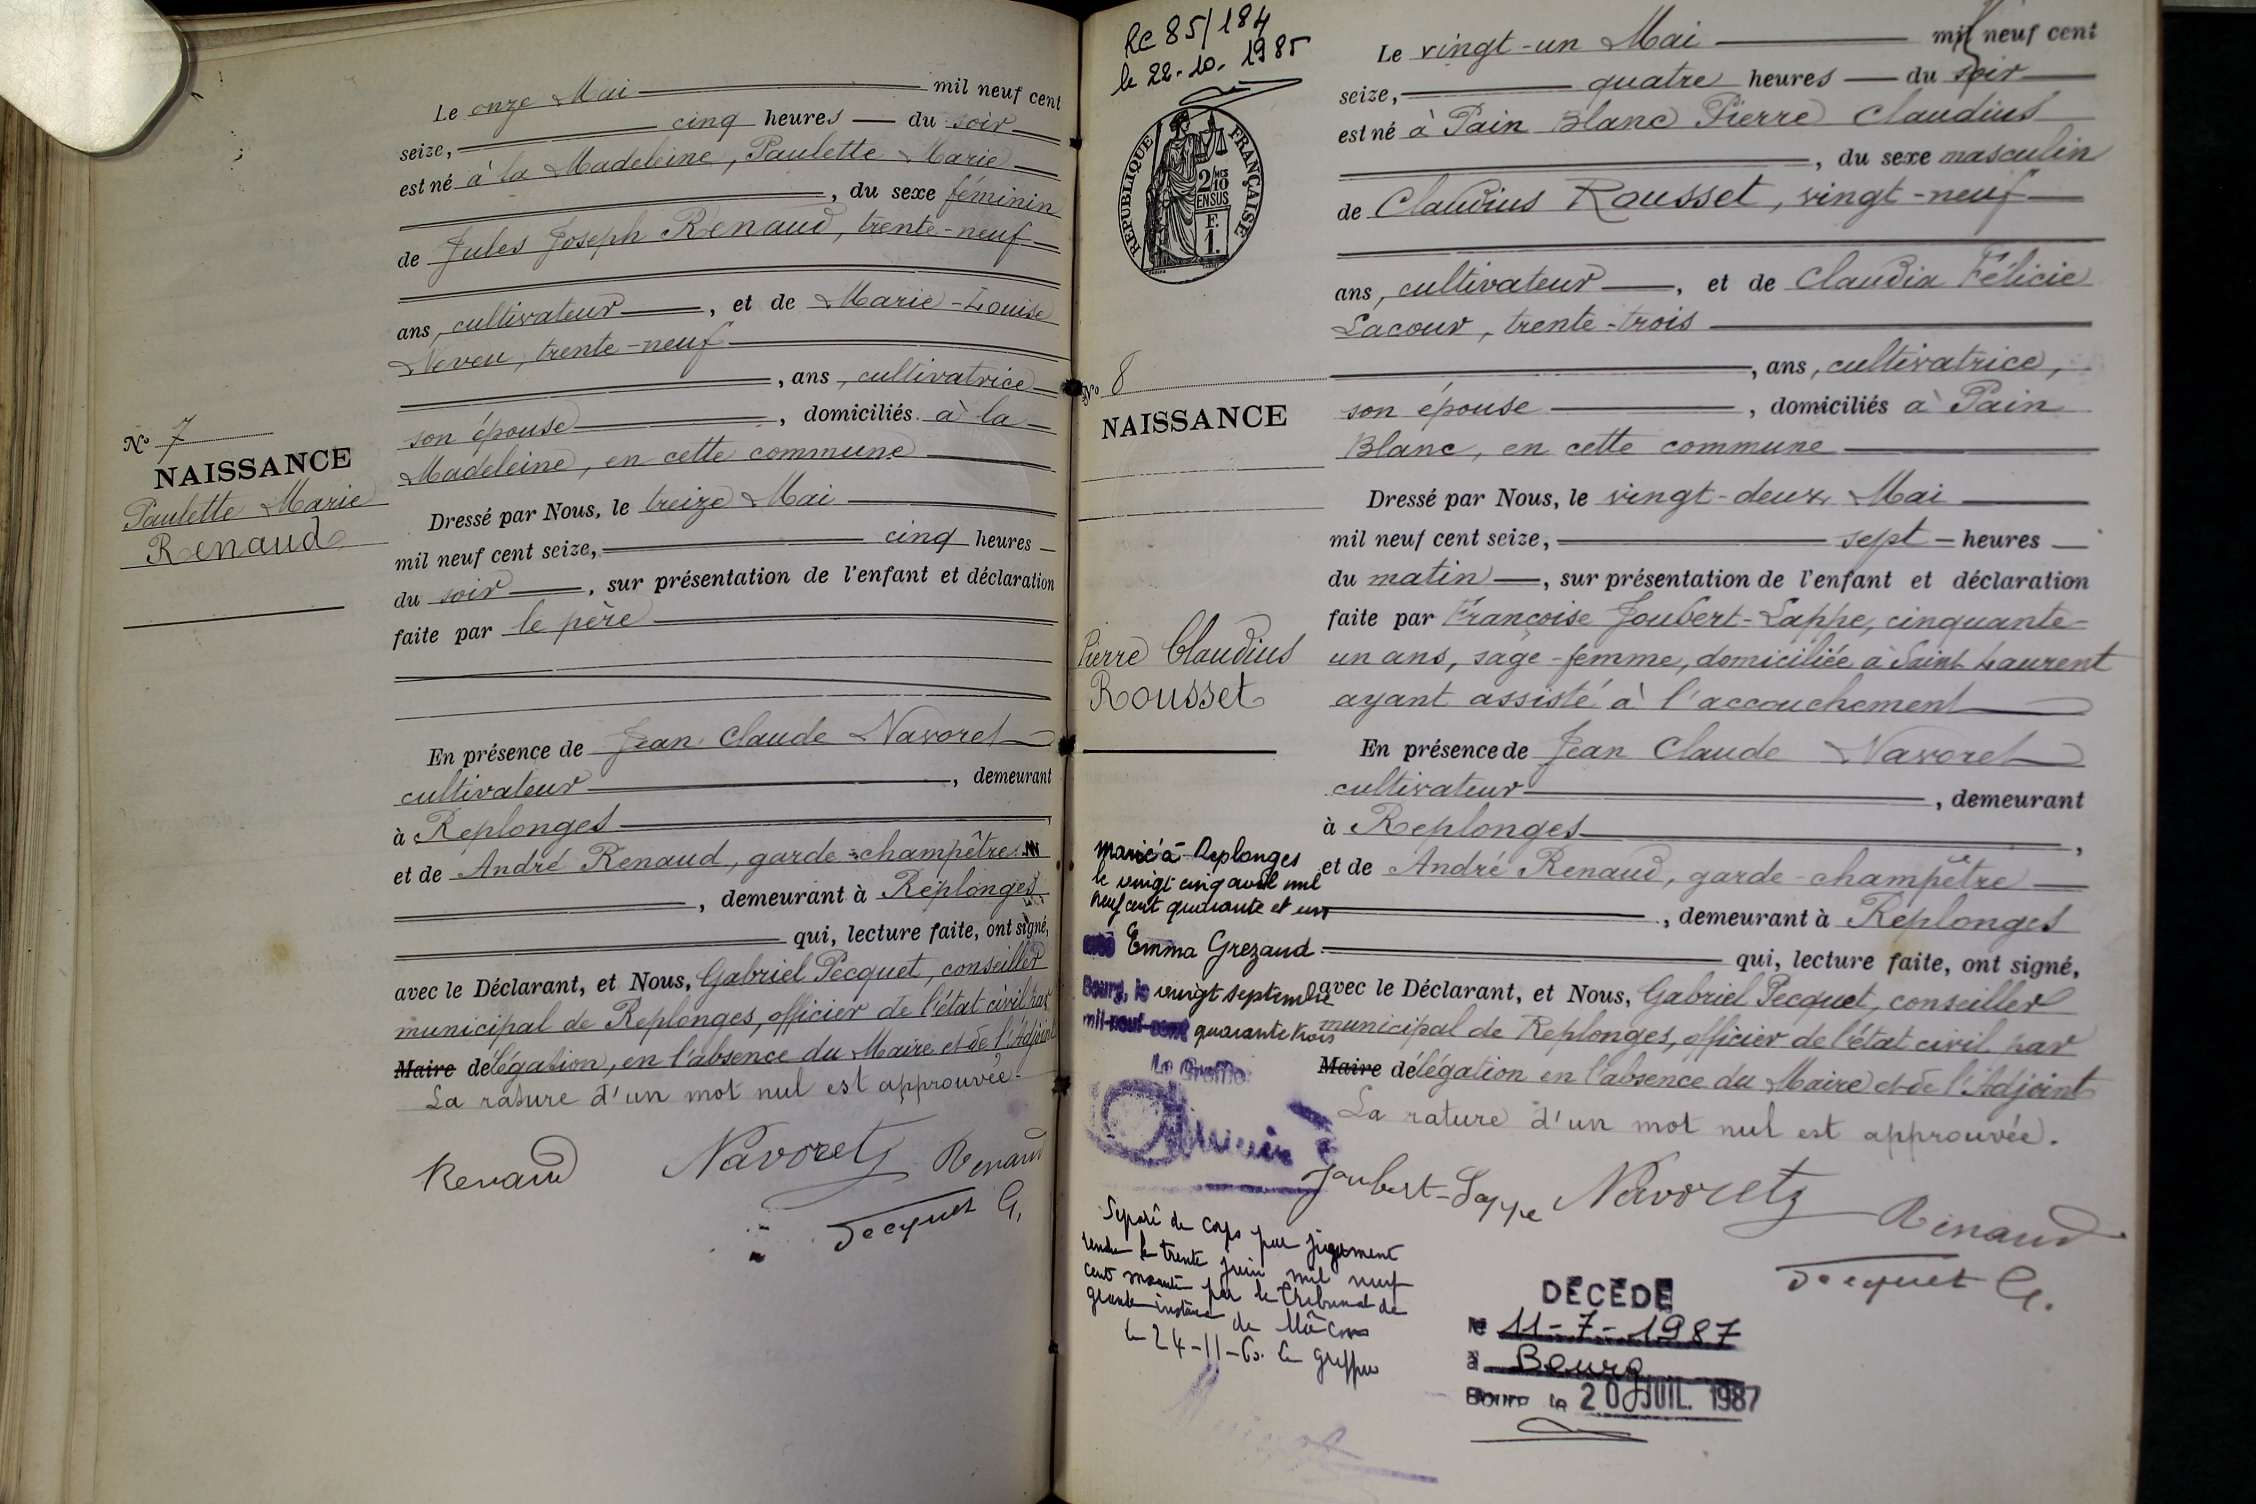 Le onze Mai mil neuf cent
seize, cinq heures du soir
est né à la Madeleine, Paulette Marie
, du sexe féminin
de Jules Joseph Renaud, trente-neuf
ans, cultivateur, et de Marie-Louise
Neveu, trente-neuf
, ans, cultivatrice
son épouse, domiciliés à la
Madeleine, en cette commune
N° 7
NAISSANCE
Paulette Marie
Renaud
Dressé par Nous, le treize Mai
mil neuf cent seize, cinq heures
du soir, sur présentation de l'enfant et déclaration
faite par le père
En présence de Jean Claude Navoret
cultivateur, demeurant
à Replonges
et de André Renaud, garde-champêtre
, demeurant à Replonges
qui, lecture faite, ont signé,
avec le Déclarant, et Nous, Gabriel Pecquet, conseiller
municipal de Replonges, officier de l'état civil par
Maire délégation, en l'absence du Maire et de l'Adjoint
La rature d'un mot nul est approuvée.
Renaud Navoret Renaud
Pecquet G.
RC 85/184
le 22-10-1985
REPUBLIQUE FRANÇAISE
2/10 MES
EN SUS
F.
1.
Le vingt-un Mai mil neuf cent
seize, quatre heures du soir
est né à Pain Blanc Pierre Claudius
, du sexe masculin
de Claudius Rousset, vingt-neuf
ans, cultivateur, et de Claudia Félicie
Lacour, trente-trois
, ans, cultivatrice,
son épouse, domiciliés à Pain
Blanc, en cette commune
N° 8
NAISSANCE
Pierre Claudius
Rousset
Dressé par Nous, le vingt-deux Mai
mil neuf cent seize, sept heures
du matin, sur présentation de l'enfant et déclaration
faite par Françoise Joubert-Lappe, cinquante-
un ans, sage-femme, domiciliée à Saint Laurent
ayant assisté à l'accouchement
En présence de Jean Claude Navoret
cultivateur, demeurant
à Replonges,
et de André Renaud, garde-champêtre
, demeurant à Replonges
qui, lecture faite, ont signé,
avec le Déclarant, et Nous, Gabriel Pecquet, conseiller
municipal de Replonges, officier de l'état civil par
Maire délégation en l'absence du Maire et de l'Adjoint
La rature d'un mot nul est approuvée.
Joubert-Lappe Navoret Renaud
Pecquet G.
Marié à Replonges
le vingt cinq avril mil
neuf cent quarante et un
avec Emma Grezaud
Bourg, le vingt septembre
mil-neuf-cent quarante trois
Le Greffier
Séparé de corps par jugement
rendu le trente juin mil neuf
cent soixante par le Tribunal de
grande instance de Mâcon
le 24-11-60. Le greffier
DÉCÉDÉ
le 11-7-1987
à Bourg
BOURG LE 20 JUIL. 1987